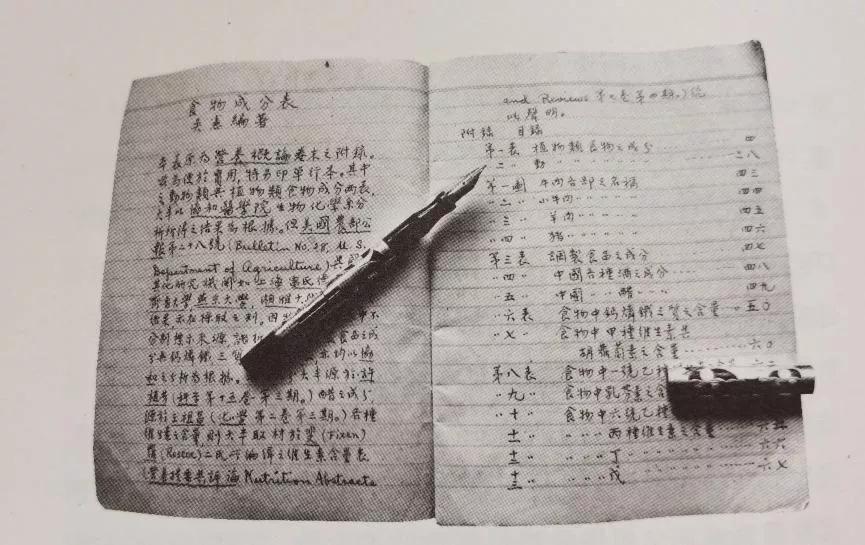 食物成分表
吳憲編著
本表原為營養概論卷末之附錄。
茲為便於實用,特另印單行本。其中
之動物類與植物類食物成分兩表,
大半以協和醫學院生物化學系分
析所得之結果為根據。但美國農部公
報第二十八號(Bulletin No. 28, U. S.
Department of Agriculture)與
其他研究機關如上海雷氏德
燕京大學 湘雅
結果亦在採取之列。因
分別標示來源
之含鈣磷鐵三
大半源於
第十五卷第三期。)醋之成分
源於 (化學第二卷第三期。)各種
維生素之含量則大半取材於斐(Fixen)
羅(Roscoe)二氏所編譯之維生素含量表
(營養摘要與評論 Nutrition Abstracts
and Reviews 第七卷第四期。)統
此聲明。
附錄 目錄
第一表 植物類食物之成分 四
〃二〃 動〃〃〃〃〃〃 二八
第一圖 牛肉各部之名稱 四三
〃二〃 小牛肉〃〃〃〃 四四
〃三〃 羊肉〃〃〃〃 四五
〃四〃 豬〃〃〃〃〃 四六
第三表 調製食品之成分 四七
〃四〃 中國各種酒之成分 四八
〃五〃 中國〃〃醋〃〃〃 四九
〃六表 食物中鈣燐鐵三質之含量 五〇
〃七〃 食物中甲種維生素與
胡蘿蔔素之含量 六〇
第八表 食物中一號乙種
〃九〃 食物中乳黃素之含
〃十〃 食物中六號乙種
十一〃 〃〃〃丙種維生素之含量 六五
十二〃 〃〃〃丁〃〃〃〃〃〃 六六
十三〃 〃〃〃戊〃〃〃〃〃〃 六七